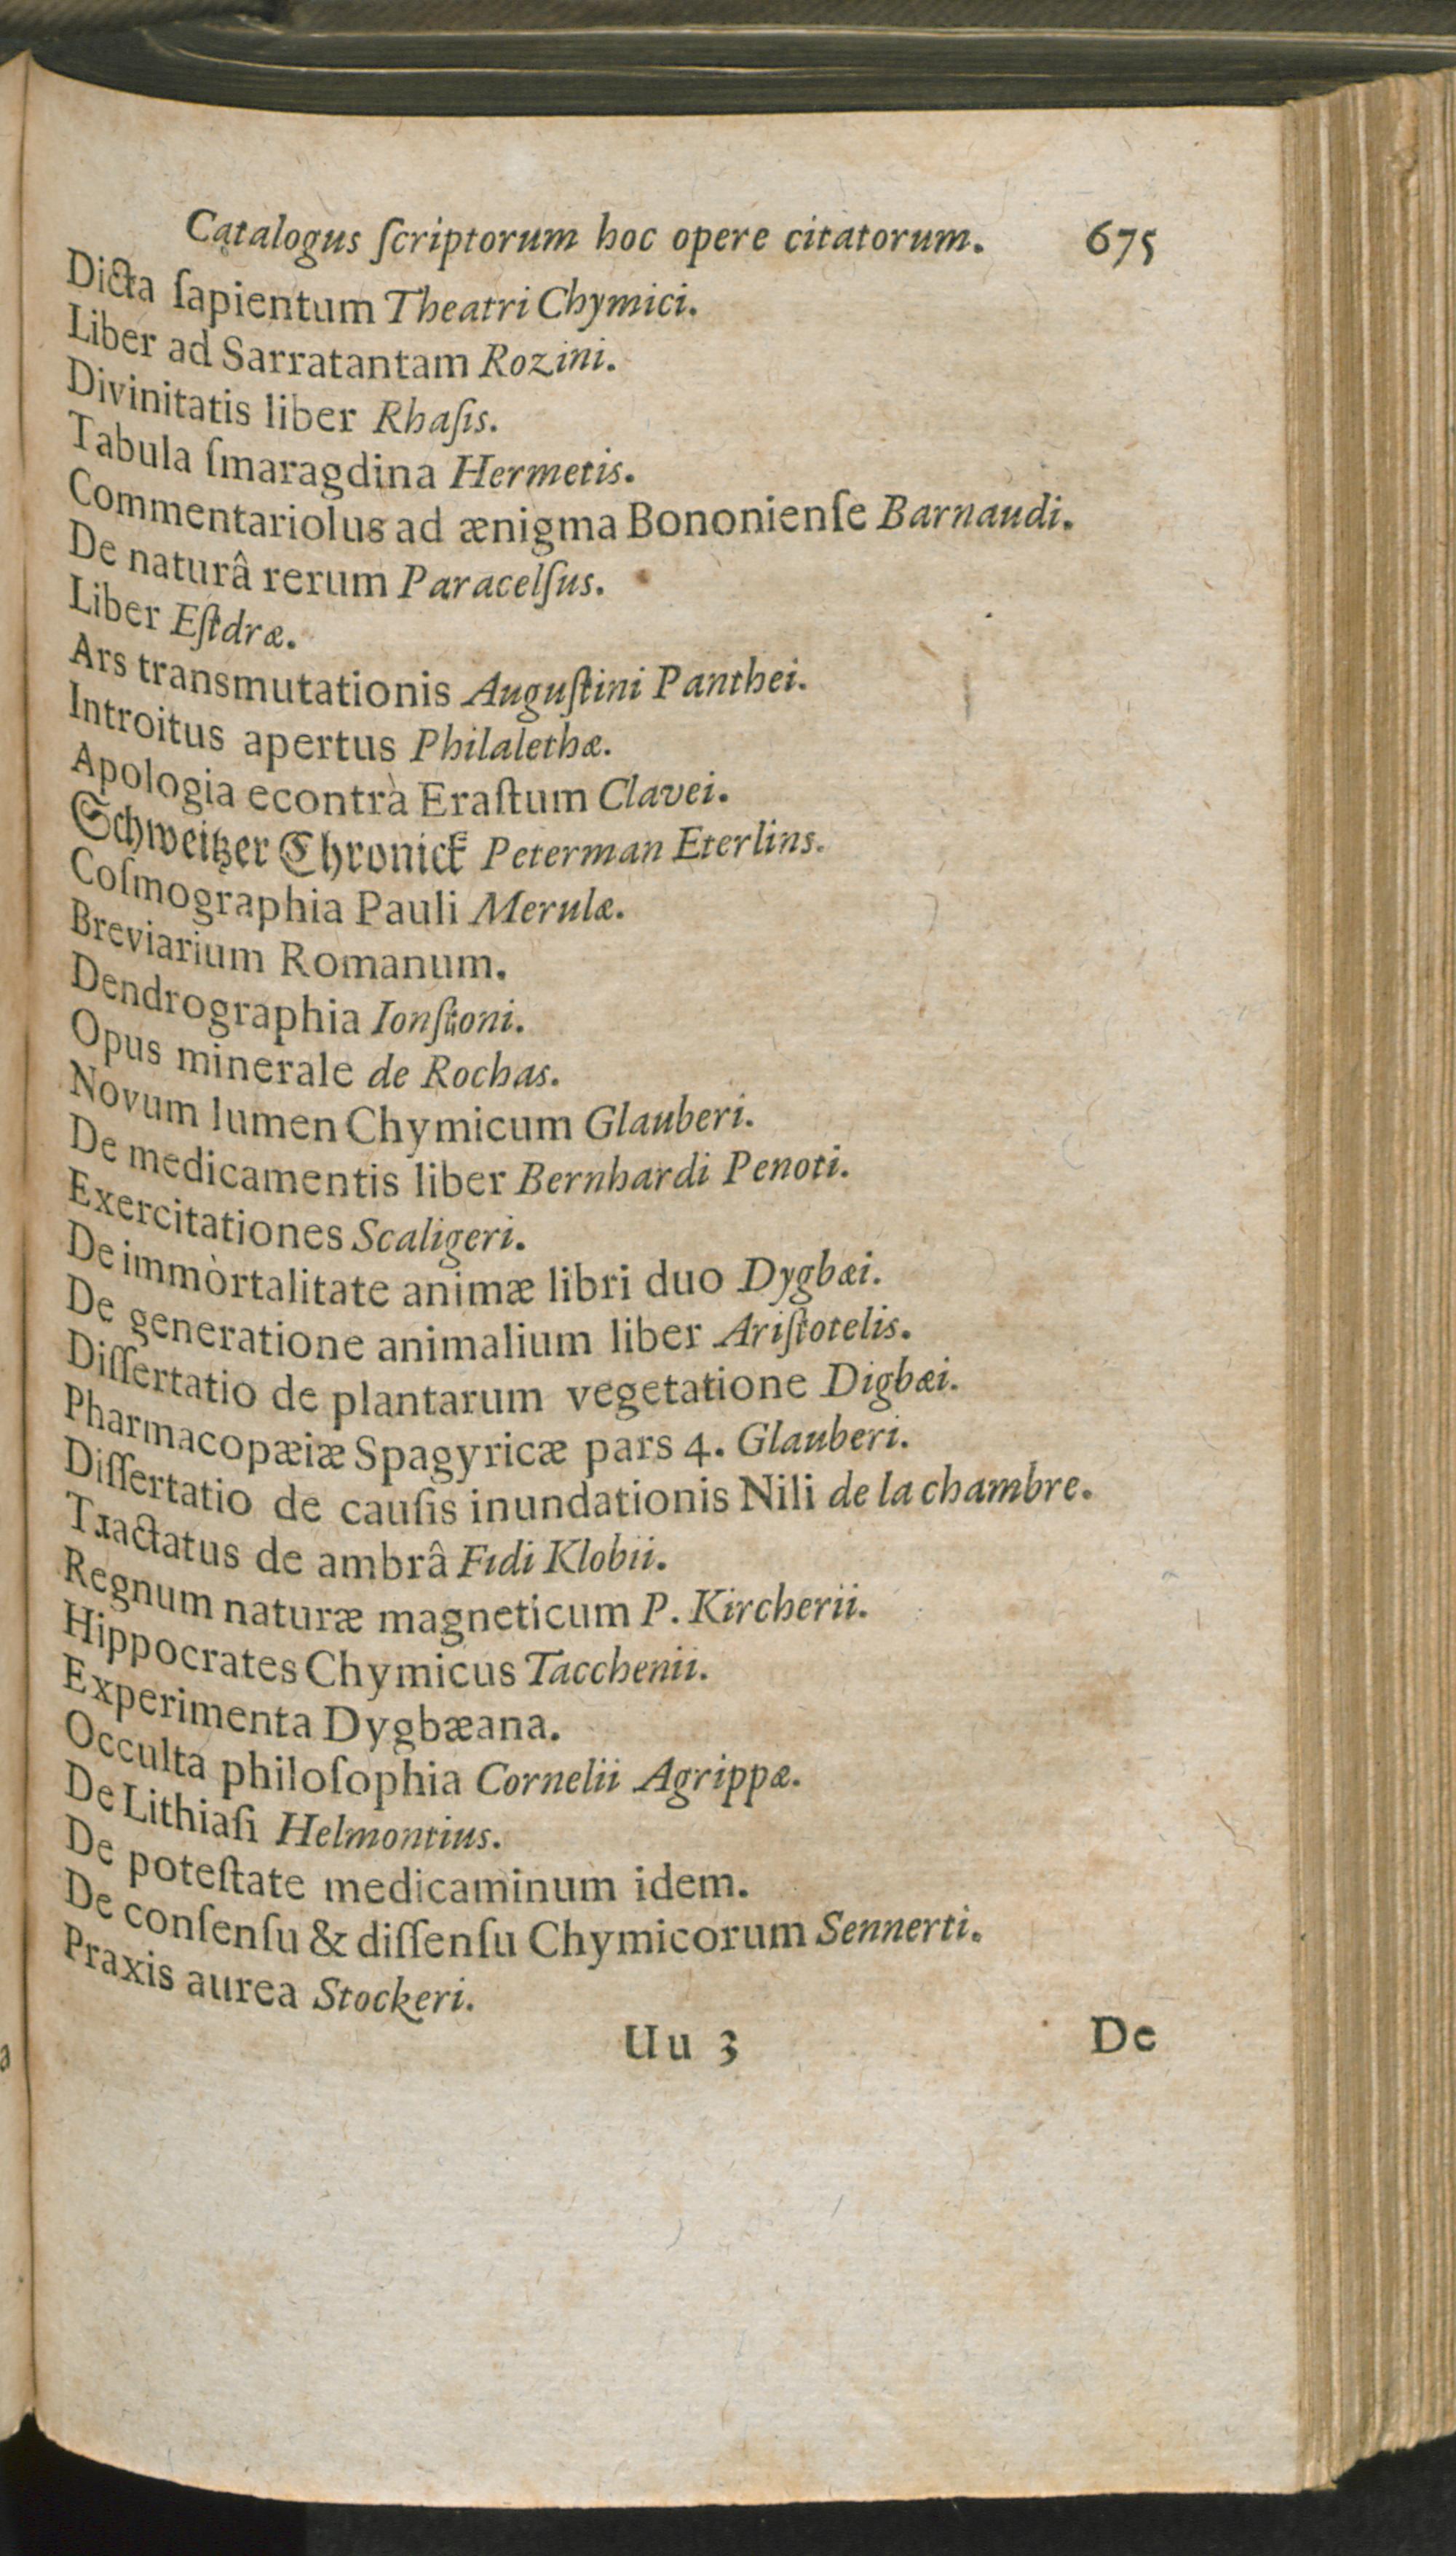 Catalogus ſcriptorum hoc opere citatorum. 675
Dicta ſapientum Theatri Chymici.
Liber ad Sarratantam Rozini.
Divinitatis liber Rhaſis.
Tabula ſmaragdina Hermetis.
Commentariolus ad ænigma Bononienſe Barnaudi.
De naturâ rerum Paracelſus.
Liber Eſtdræ.
Ars transmutationis Auguſtini Panthei.
Introitus apertus Philalethæ.
Apologia econtrà Eraſtum Clavei.
Schweitzer Chronick Peterman Eterlins.
Coſmographia Pauli Merulæ.
Breviarium Romanum.
Dendrographia Ionſtoni.
Opus minerale de Rochas.
Novum lumen Chymicum Glauberi.
De medicamentis liber Bernhardi Penoti.
Exercitationes Scaligeri.
De immortalitate animæ libri duo Dygbæi.
De generatione animalium liber Ariſtotelis.
Diſſertatio de plantarum vegetatione Digbæi.
Pharmacopæiæ Spagyricæ pars 4. Glauberi.
Diſſertatio de cauſis inundationis Nili de la chambre.
Tractatus de ambrâ Fidi Klobii.
Regnum naturæ magneticum P. Kircherii.
Hippocrates Chymicus Tacchenii.
Experimenta Dygbæana.
Occulta philoſophia Cornelii Agrippæ.
De Lithiaſi Helmontius.
De poteſtate medicaminum idem.
De conſenſu & diſſenſu Chymicorum Sennerti.
Praxis aurea Stockeri.
Uu 3 De